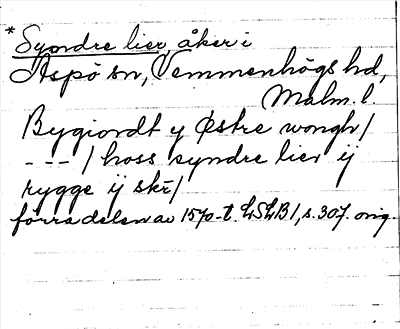 *Syndre lier, åker i
Äspö sn, Vemmenhögs hd,
Malm. l.
Bygiordt y Østre wongh /
--- / hoss syndre lier ij
rygge ij skr /
förra delen av 1570-t. LSLB1, s. 307. orig.